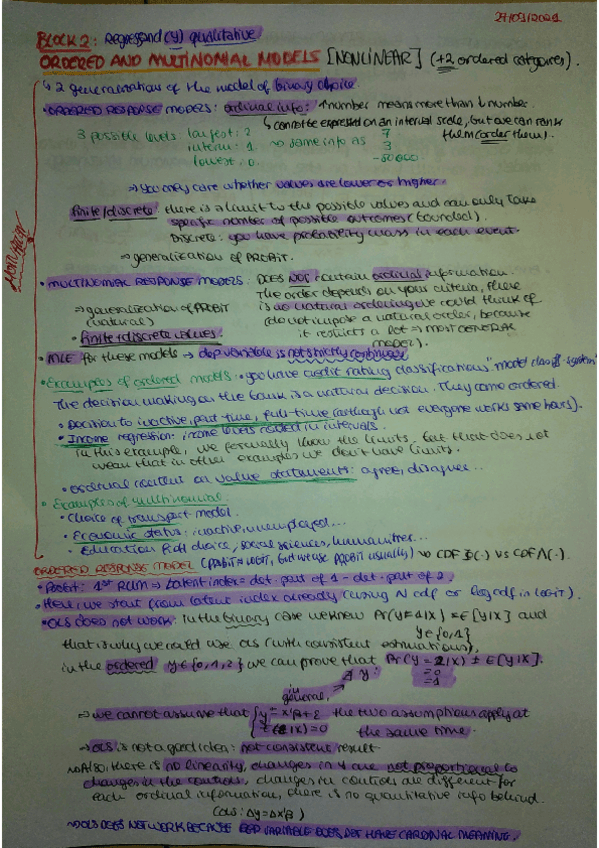 27/09/2021
BLOCK 2: Regressand (y) qualitative
ORDERED AND MULTINOMIAL MODELS [NONLINEAR] (+2 ordered categories).
↳ 2 generalization of the model of binary choice.
• ORDERED RESPONSE MODELS: ordinal info: ↑number means more than ↓ number.
↳ cannot be expressed on an interval scale, but we can rank them (order them).
3 possible levels largest: 2 7
interm: 1 → same info as 3
lowest: 0. -50000
⇒ you only care whether values are lower or higher.
finite/discrete: there is a limit to the possible values and can only take
specific number of possible outcomes (bounded).
Discrete: you have probability mass in each event.
⇒ generalization of PROBIT.
• MULTINOMIAL RESPONSE MODELS: DOES NOT contain ordinal information.
The order depends on your criteria, there
⇒ generalization of PROBIT is no natural ordering we could think of
(natural) (do not impose a natural order, because
• finite + discrete values. it restricts a lot ⇒ most GENERAL
MODEL).
• MLE for these models → dep variable is not strictly continuous
• Examples of ordered models: • you have credit rating classifications "model classif-system"
The decision making on the bank is a natural decision. They come ordered.
• position to inactive, part-time, full-time (although not everyone works same hours).
• Income regression: income levels coded in intervals.
In this example, we personally know the limits, but that does not
mean that in other examples we don't have limits.
• ordinal content on value statements: agree, disagree...
• Examples of multinomial:
• Choice of transport model.
• Economic status: inactive, unemployed...
• Education field choice, social sciences, humanities...
ORDERED RESPONSE MODEL (probit = logit, but we use PROBIT usually) → CDF Φ(·) vs CDF Λ(·).
• Probit: 1st RUM ⇒ Latent index = det. part of 1 - det. part of 2.
• Here we start from latent index already (using N cdf or log cdf in LOGIT).
• OLS does not work: In the binary case we knew Pr(Y=1|X) = E[Y|X] and
Y∈{0,1}
that is why we could use OLS (with consistent estimations),
in the ordered Y∈{0,1,2} we can prove that Pr(Y=2|X) ≠ E[Y|X].
=0
=1
in general,
⇒ we cannot assume that { y = x'β+ε the two assumptions apply at
E(ε|X)=0 the same time.
⇒ OLS is not a good idea: not consistent result
→ Also, there is no linearity, changes in Y are not proportional to
changes in the controls, changes in controls are different for
each ordinal information, there is no quantitative info behind.
(OLS: ΔY=ΔX'β)
⇒ OLS DOES NOT WORK BECAUSE DEP VARIABLE DOES NOT HAVE CARDINAL MEANING.